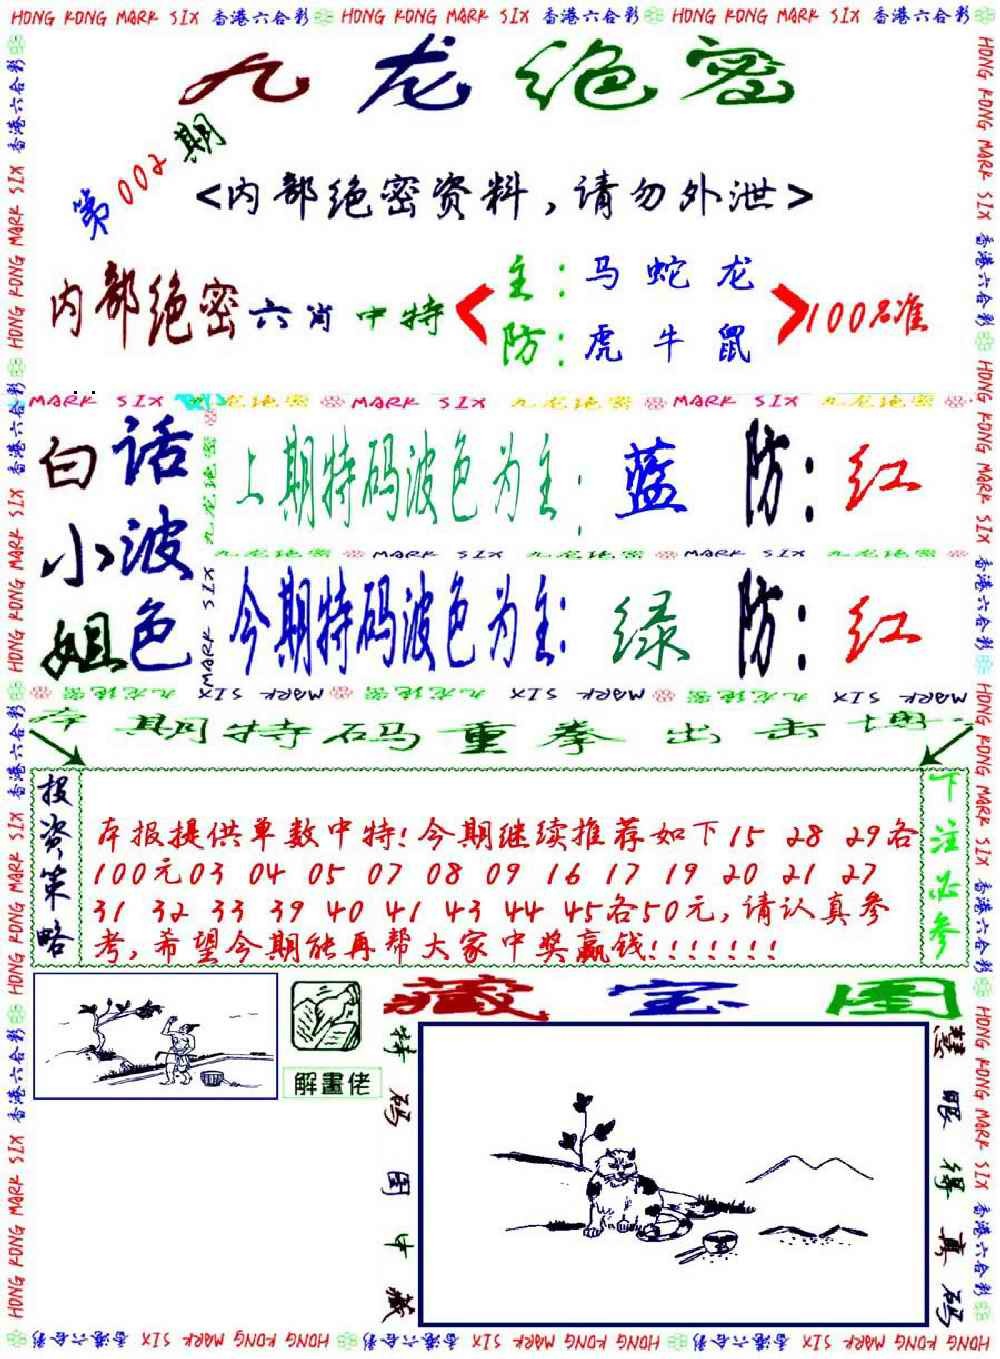 HONG KONG MARK SIX 香港六合彩 HONG KONG MARK SIX 香港六合彩 HONG KONG MARK SIX 香港六合彩
九龙绝密
第002期
<内部绝密资料,请勿外泄>
内部绝密六肖中特
主:马蛇龙
防:虎牛鼠
100%准
MARK SIX 九龙绝密 MARK SIX 九龙绝密 MARK SIX 九龙绝密
白小姐
话波色
上期特码波色为主:蓝 防:红
九龙绝密 MARK SIX 九龙绝密 MARK SIX 九龙绝密
今期特码波色为主:绿 防:红
九龙绝密 MARK SIX 九龙绝密 MARK SIX 九龙绝密 MARK SIX
本期特码重拳出击
投资策略
本报提供单数中特!今期继续推荐如下15 28 29各
100元03 04 05 07 08 09 16 17 19 20 21 27
31 32 33 39 40 41 43 44 45各50元,请认真参
考,希望今期能再帮大家中奖赢钱!!!!!!!
下注必参
解畫佬
藏宝图
特码图中藏
慧眼得真码
HONG KONG MARK SIX 香港六合彩 HONG KONG MARK SIX 香港六合彩 HONG KONG MARK SIX 香港六合彩